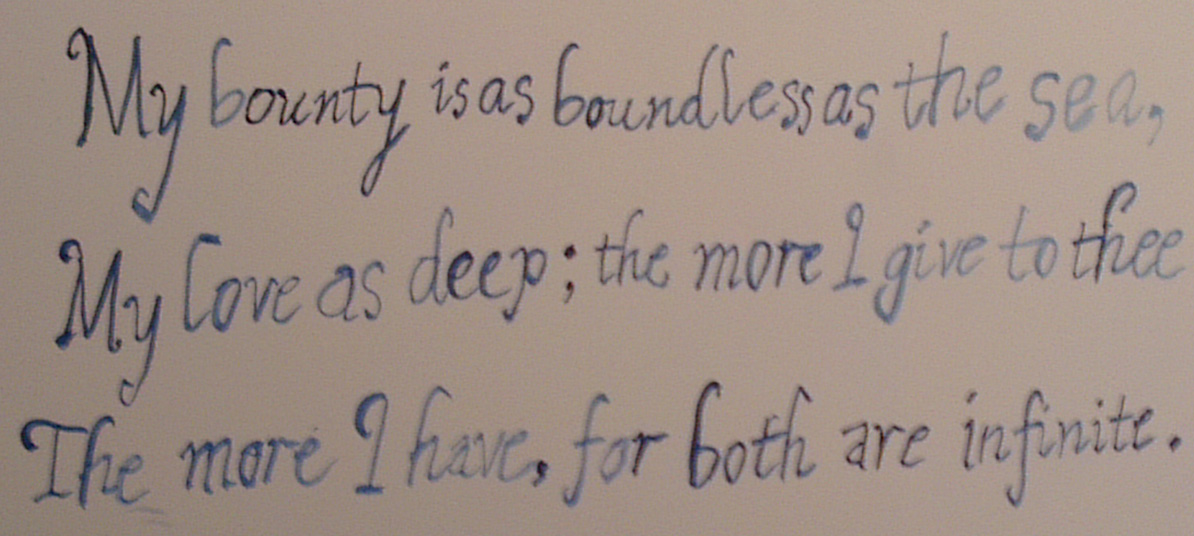 My bounty is as boundless as the sea,
My love as deep; the more I give to thee
The more I have, for both are infinite.